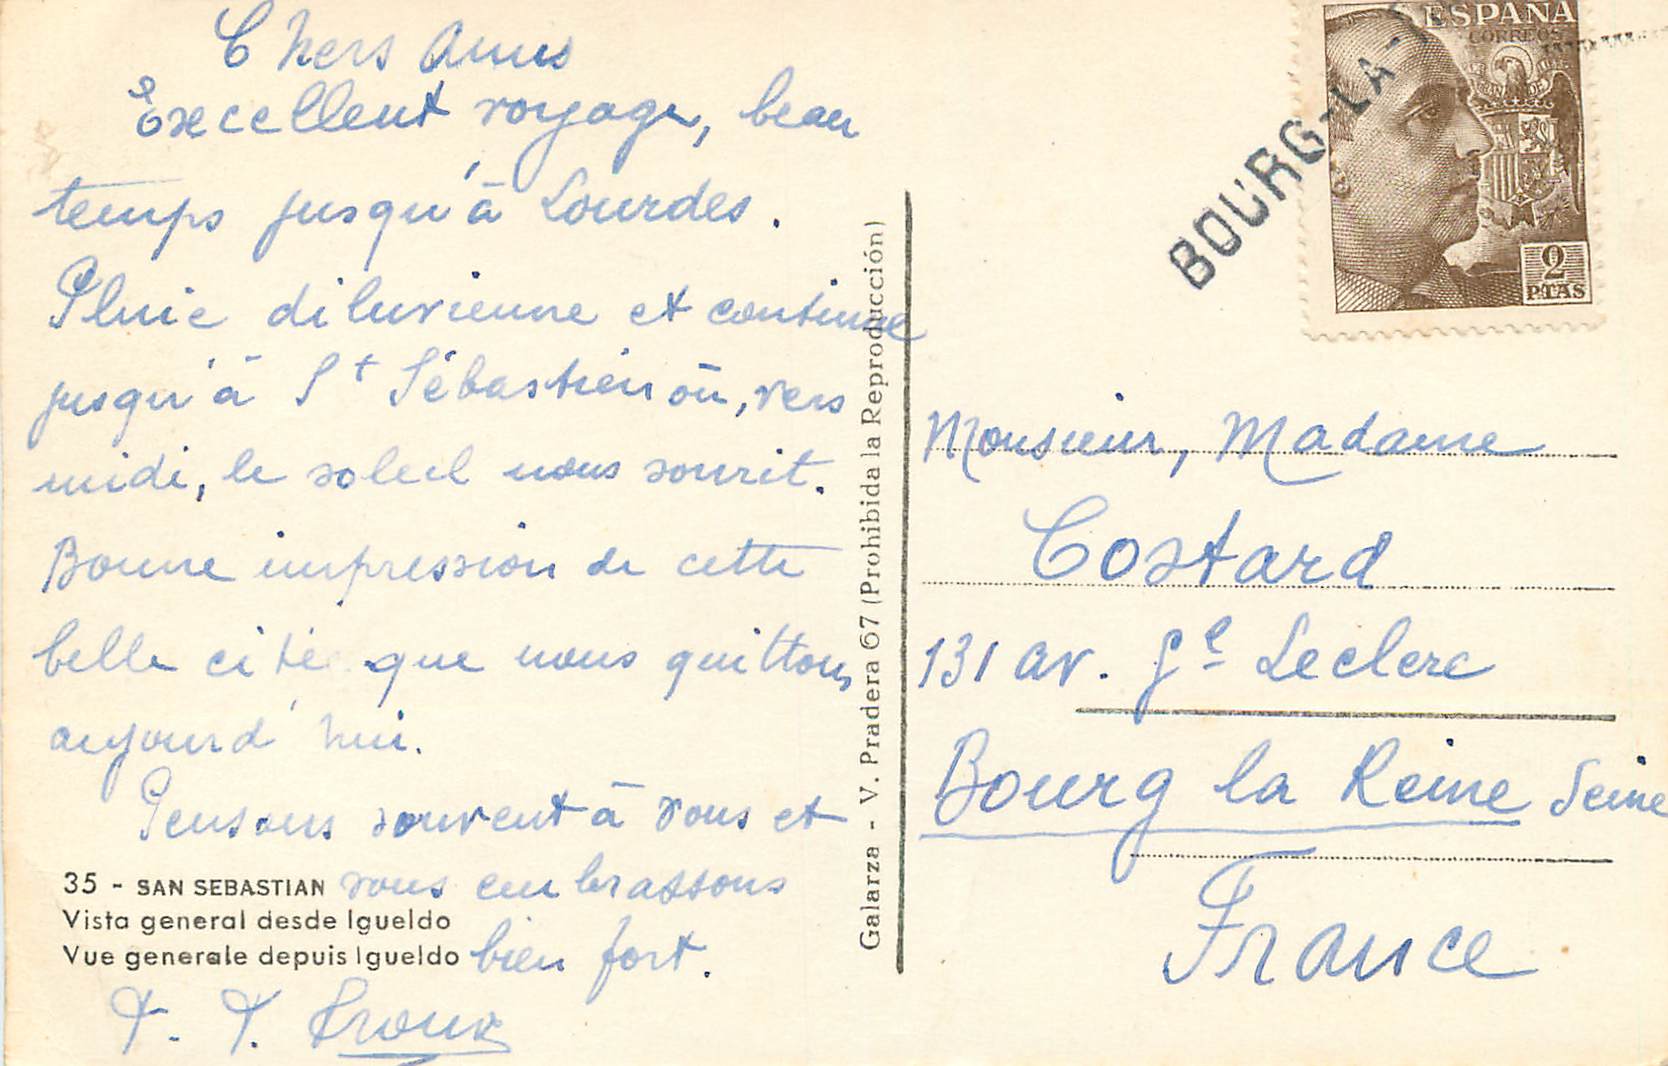 Chers Amis
Excellent voyage, beau
temps jusqu'à Lourdes.
Pluie diluvienne et continue
jusqu'à St Sébastien où, vers
midi, le soleil nous sourit.
Bonne impression de cette
belle cité que nous quittons
aujourd'hui.
Pensons souvent à vous et
vous embrassons
bien fort.
35 - SAN SEBASTIAN
Vista general desde Igueldo
Vue generale depuis Igueldo
Galarza - V. Pradera 67 (Prohibida la Reproducción)
BOURG-LA-
ESPAÑA
CORREOS
2
PTAS
Monsieur, Madame
Costard
131 av. Gl Leclerc
Bourg la Reine Seine
France